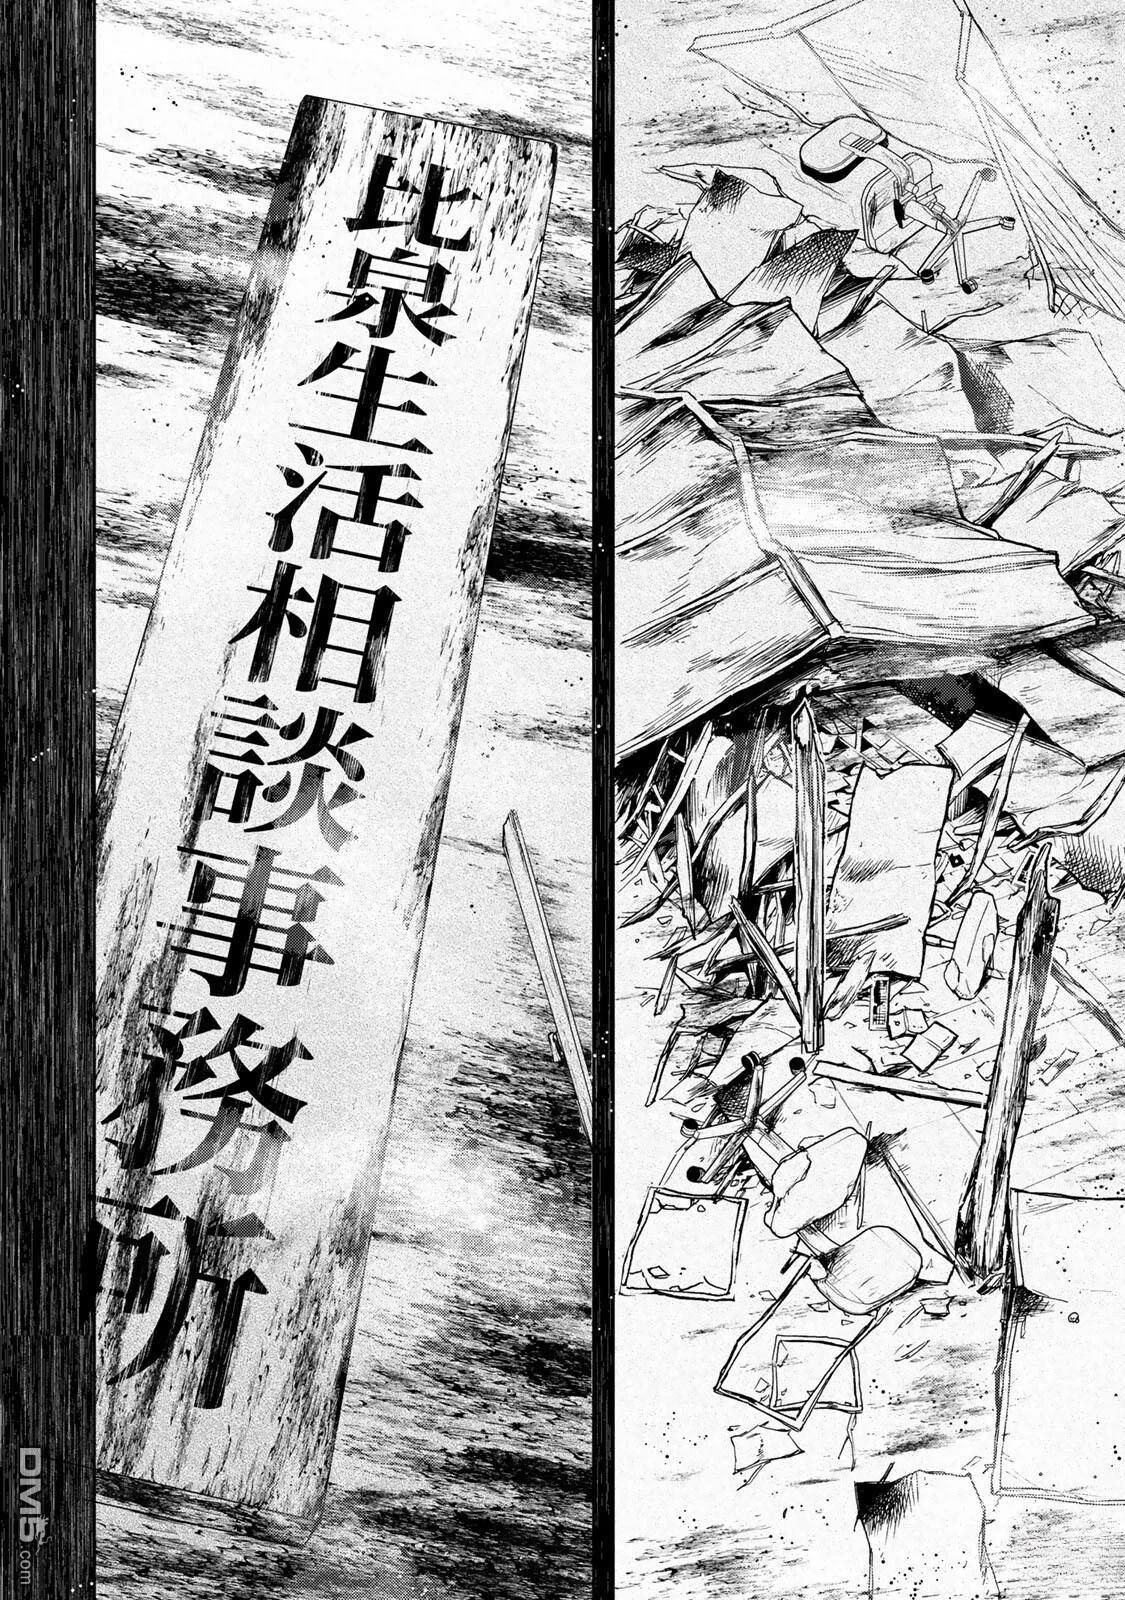 比泉生活相談事務所
DM5.com